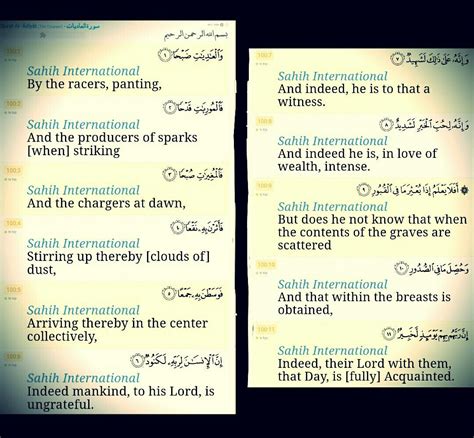 سورة العاديات
بسم الله الرحمن الرحيم
100:1
وَالْعَٰدِيَٰتِ ضَبْحًا ١
Sahih International
By the racers, panting,
100:2
فَالْمُورِيَٰتِ قَدْحًا ٢
Sahih International
And the producers of sparks
[when] striking
100:3
فَالْمُغِيرَٰتِ صُبْحًا ٣
Sahih International
And the chargers at dawn,
100:4
فَأَثَرْنَ بِهِ نَقْعًا ٤
Sahih International
Stirring up thereby [clouds of]
dust,
100:5
فَوَسَطْنَ بِهِ جَمْعًا ٥
Sahih International
Arriving thereby in the center
collectively,
100:6
إِنَّ الْإِنسَٰنَ لِرَبِّهِ لَكَنُودٌ ٦
Sahih International
Indeed mankind, to his Lord, is
ungrateful.
100:7
وَإِنَّهُ عَلَىٰ ذَٰلِكَ لَشَهِيدٌ ٧
Sahih International
And indeed, he is to that a
witness.
100:8
وَإِنَّهُ لِحُبِّ الْخَيْرِ لَشَدِيدٌ ٨
Sahih International
And indeed he is, in love of
wealth, intense.
100:9
أَفَلَا يَعْلَمُ إِذَا بُعْثِرَ مَا فِي الْقُبُورِ ٩
Sahih International
But does he not know that when
the contents of the graves are
scattered
100:10
وَحُصِّلَ مَا فِي الصُّدُورِ ١٠
Sahih International
And that within the breasts is
obtained,
100:11
إِنَّ رَبَّهُم بِهِمْ يَوْمَئِذٍ لَّخَبِيرٌ ١١
Sahih International
Indeed, their Lord with them,
that Day, is [fully] Acquainted.